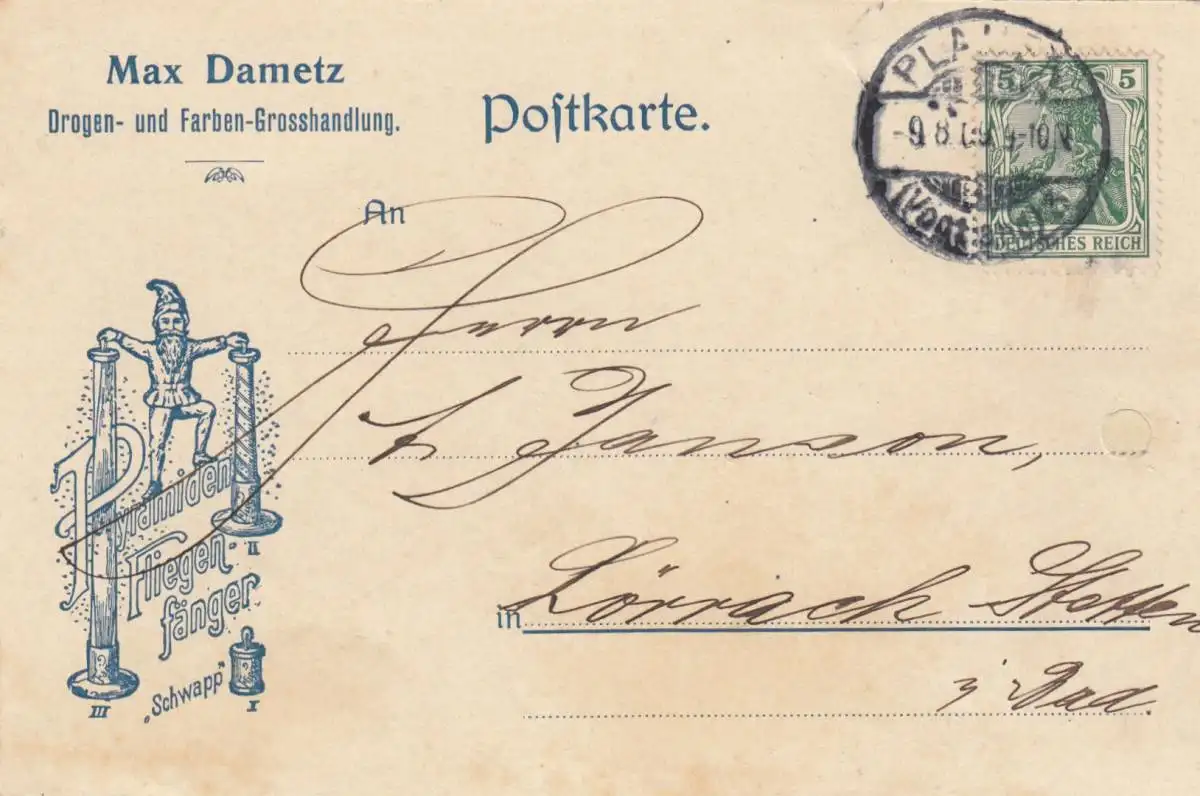 Max Dametz
Drogen- und Farben-Grosshandlung.
Postkarte.
5 5
DEUTSCHES REICH
(Vogtland)
An
Herrn
L Janson,
in Lörrach Stetten
i/ Bad.
Pyramiden
Fliegen-
fänger
„Schwapp"
III
II
I